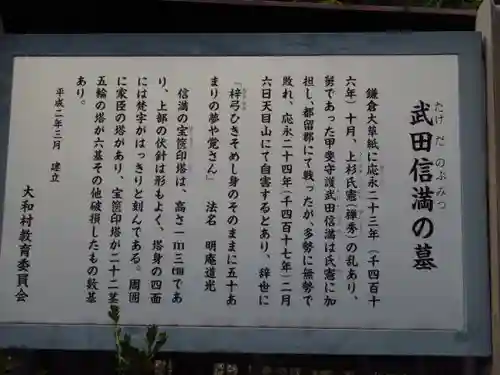 武田信満の墓
たけ だ のぶみつ
鎌倉大草紙に応永二十三年(千四百十
六年)十月、上杉氏憲(禅秀)の乱あり、
努であった甲斐守護武田信満は氏憲に加
担し、都留郡にて戦ったが、多勢に無勢で
敗れ、応永二十四年(千四百十七年)二月
六日天目山にて自害するとあり、辞世に
『梓弓ひきそめし身のそのままに五十あ
まりの夢や覚さん』 法名 明庵道光
信満の宝篋印塔は、高さ一m三㎝であ
り、上部の伏針は形もよく、塔身の四面
には梵字がはっきりと刻んである。周囲
に家臣の塔があり、宝篋印塔が二十二基
五輪の塔が六基その他破損したもの数基
あり。
平成二年三月 建立
大和村教育委員会